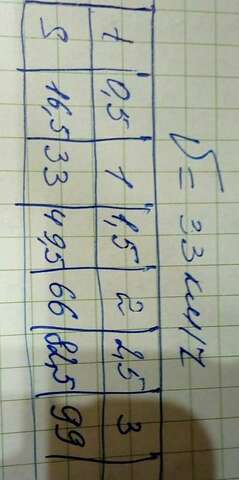 V = 33 км/ч
t 0,5 1 1,5 2 2,5 3
S 16,5 33 49,5 66 82,5 99